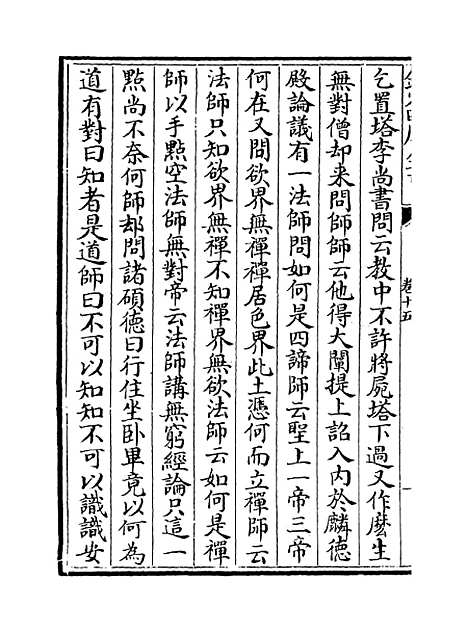 卷十五
乞置塔李尚書問云教中不許將屍塔下過又作麽生
無對僧却来問師師云他得大闡提上詔入內於麟德
殿論議有一法師問如何是四諦師云聖上一帝三帝
何在又問欲界無禪禪居色界此土憑何而立禪師云
法師只知欲界無禪不知禪界無欲法師云如何是禪
師以手點空法師無對帝云法師講無窮經論只這一
點尚不奈何師却問諸碩德曰行住坐卧畢竟以何為
道有對曰知者是道師曰不可以知知不可以識識安